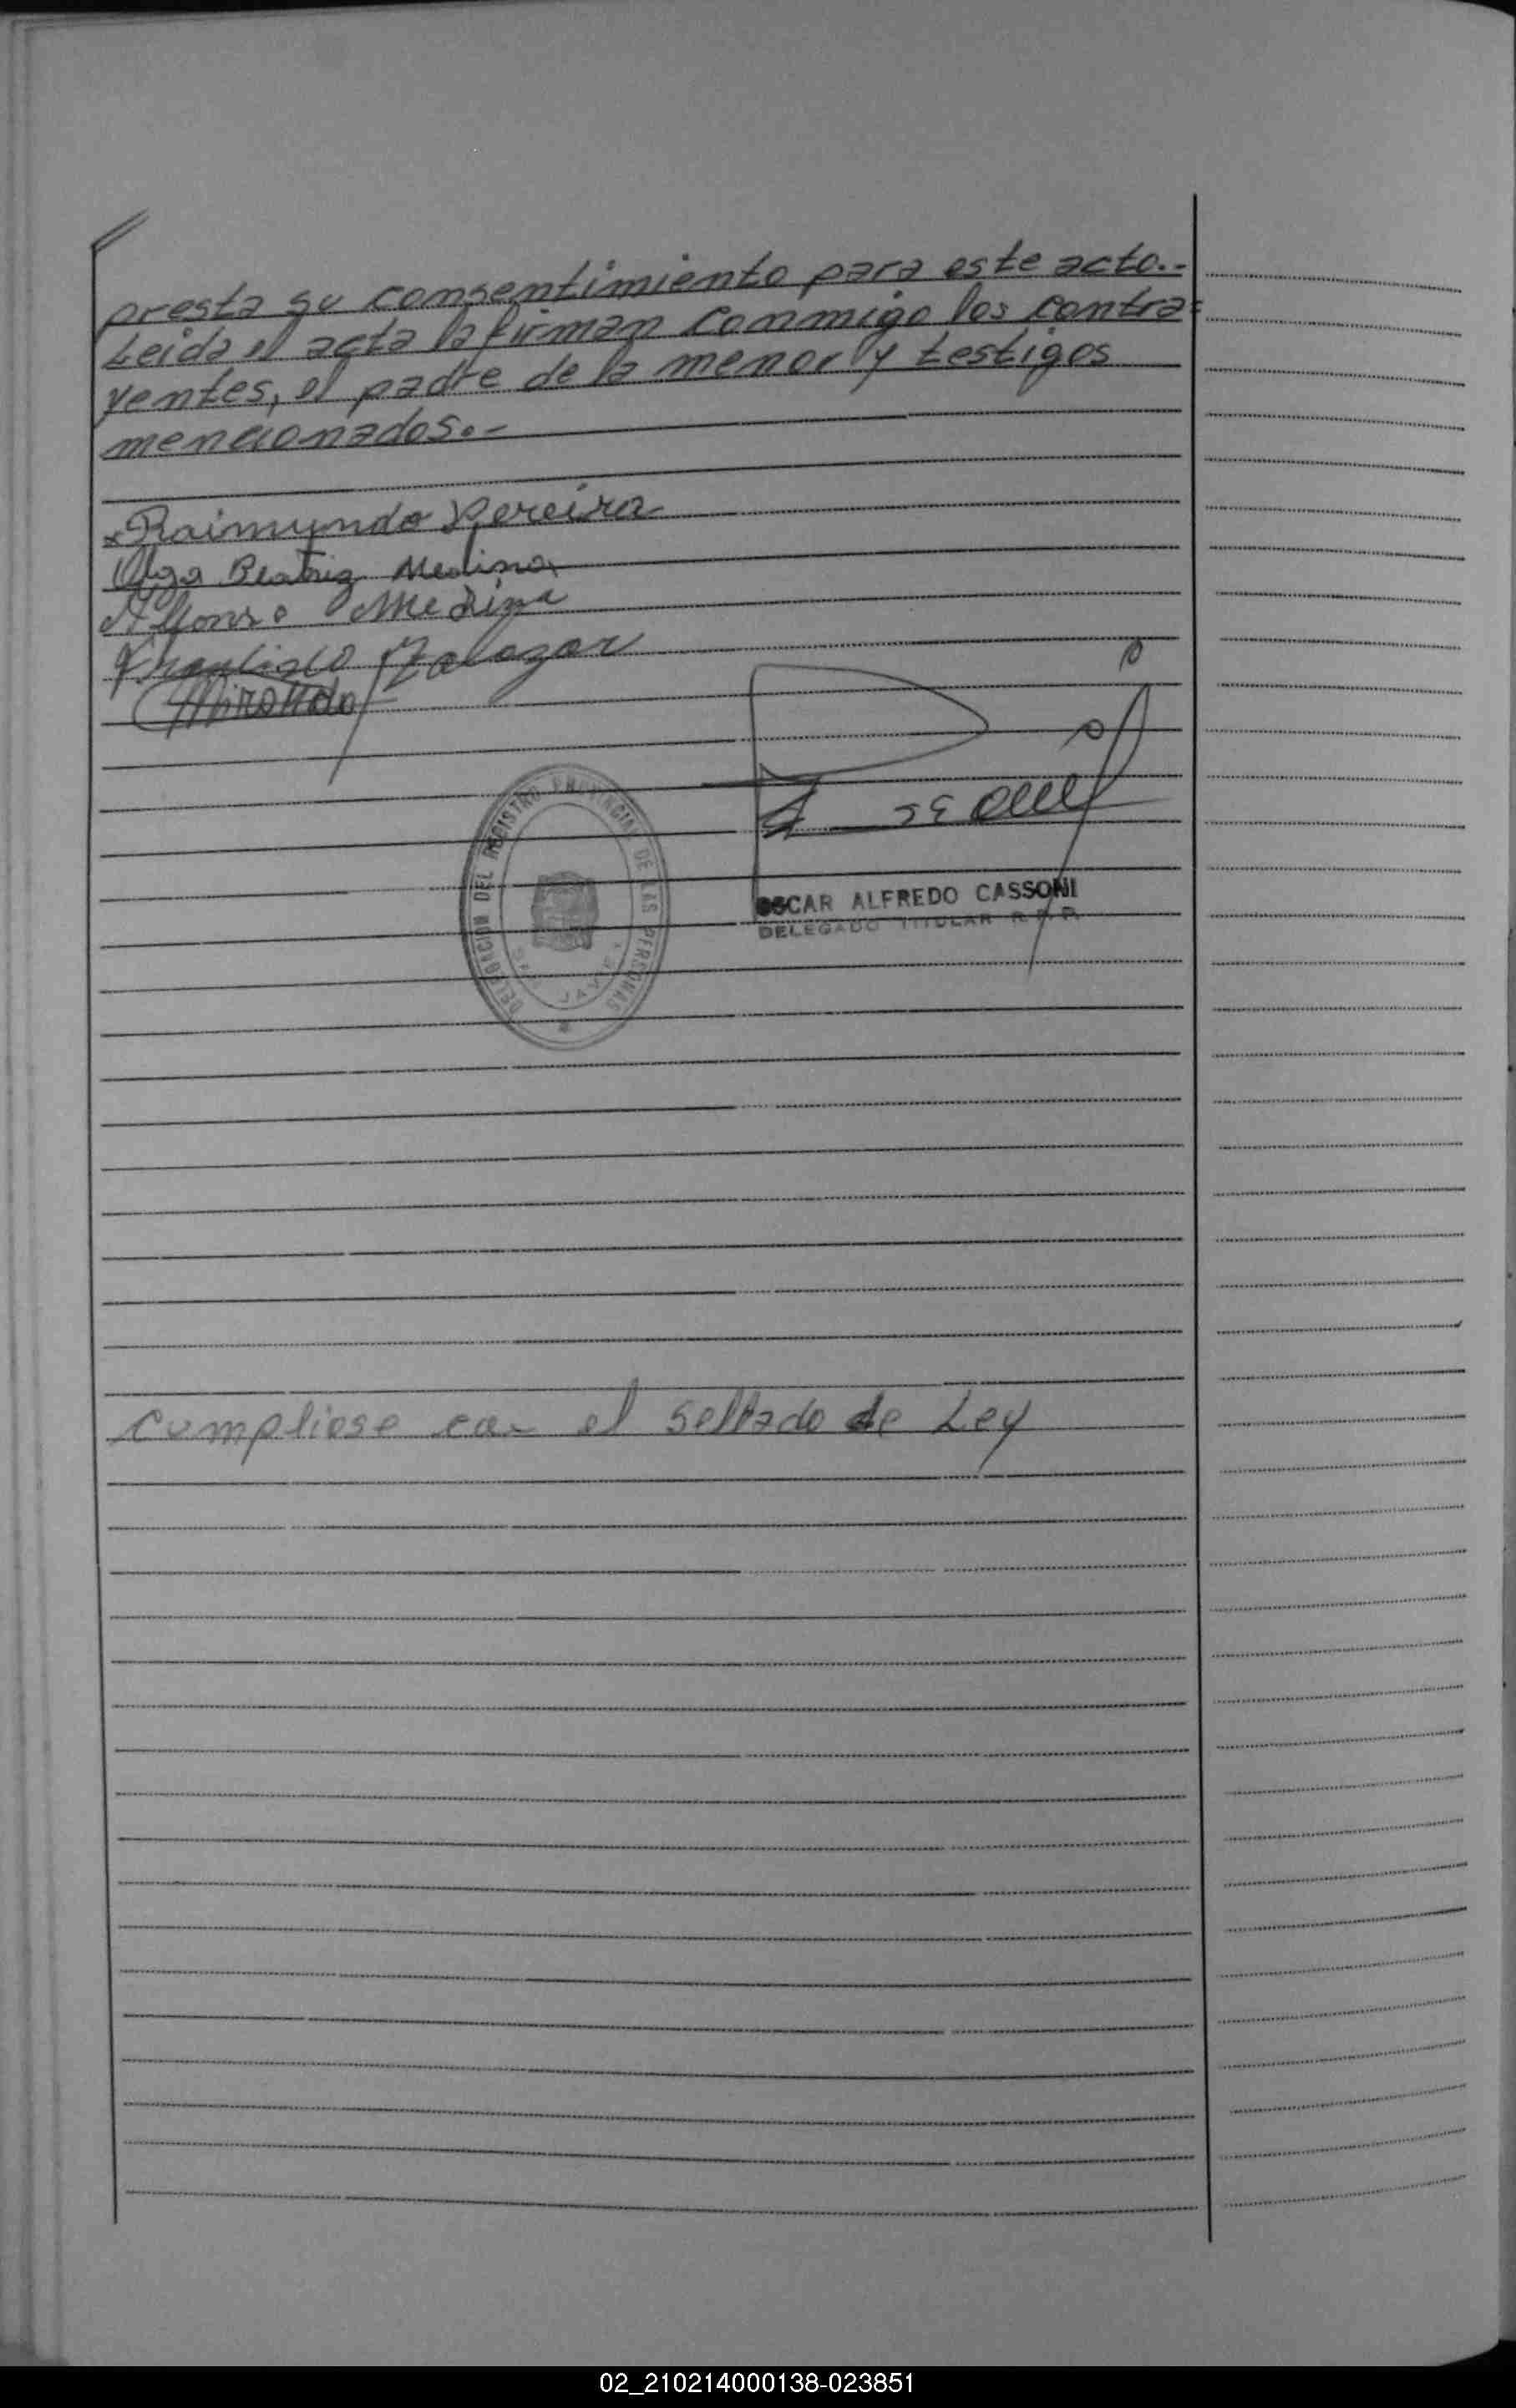 presta su consentimiento para este acto.-
Leida el acta la firman conmigo los contra=
yentes, el padre de la menor y testigos
mencionados.-
Raimundo Pereira
Olga Beatriz Medina
Alfonso Medina
Zalazar
Miranda
DELEGACION DEL REGISTRO PROVINCIAL DE LAS PERSONAS
JAVIER
OSCAR ALFREDO CASSONI
DELEGADO TITULAR R.P.P.
cumpliose con el sellado de Ley
02_210214000138-023851